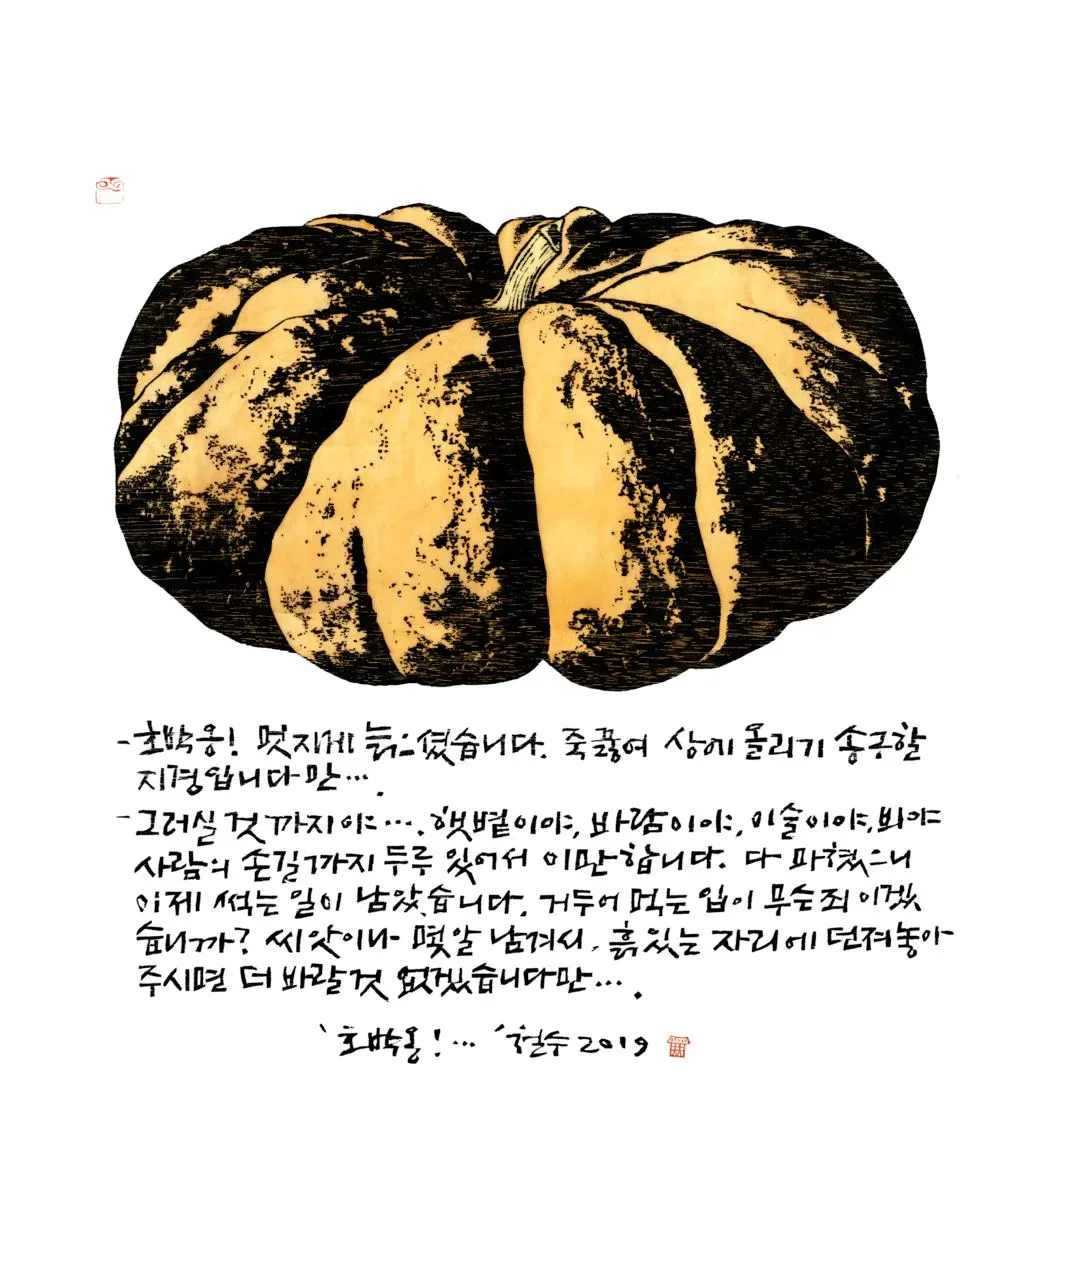 - 호박옹! 멋지게 늙으셨습니다. 죽끓여 상에 올리기 송구할
지경입니다만….
- 그러실 것 까지야…. 햇볕이야, 바람이야, 이슬이야, 봐야
사람의 손길까지 두루 있어서 이만합니다. 다 파혔으니
이제 썩는 일이 남았습니다. 거두어 먹는 입이 무슨죄이겠
습니까? 씨앗이나 몇알 남겨서, 흙있는 자리에 던져놓아
주시면 더 바랄것 없겠습니다만….
'호박옹!…' 철수 2019